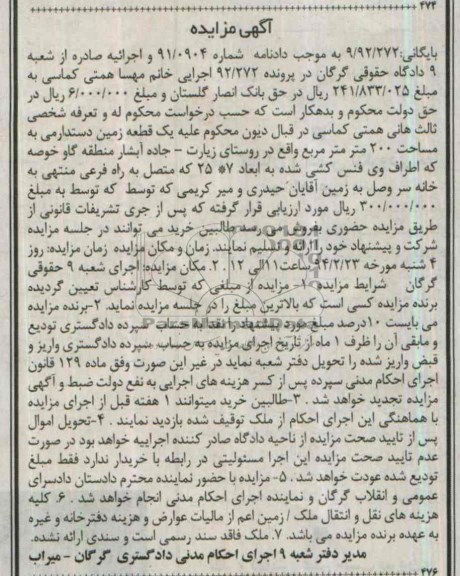 ۴۷۴
آگهی مزایده
بایگانی:۹/۹۲/۲۷۲ به موجب دادنامه شماره ۹۱/۰۹۰۴ و اجرائیه صادره از شعبه
۹ دادگاه حقوقی گرگان در پرونده ۹۲/۲۷۲ اجرایی خانم مهسا همتی کماسی به
مبلغ ۲۴۱/۸۳۳/۰۲۵ ریال در حق بانک انصار گلستان و مبلغ ۶/۰۰۰/۰۰۰ ریال در
حق دولت محکوم و بدهکار است که حسب درخواست محکوم له و تعرفه شخصی
ثالث هانی همتی کماسی در قبال دیون محکوم علیه یک قطعه زمین دستدارمی به
مساحت ۲۰۰ متر متر مربع واقع در روستای زیارت – جاده آبشار منطقه گاو خوصه
که اطراف وی فنس کشی شده به ابعاد ۷* ۲۵ که متصل به راه فرعی منتهی به
خانه سر وصل به زمین آقایان حیدری و میر کریمی که توسط که توسط به مبلغ
۳۰۰/۰۰۰/۰۰۰ ریال مورد ارزیابی قرار گرفته که پس از جری تشریفات قانونی از
طریق مزایده حضوری بفروش می رسد طالبین خرید می توانند در جلسه مزایده
شرکت و پیشنهاد خود را ارائه و تسلیم نمایند. زمان و مکان مزایده زمان مزایده: روز
۴ شنبه مورخه ۹۴/۲/۲۳ ساعت ۱۱الی ۱۲ . ۲. مکان مزایده: اجرای شعبه ۹ حقوقی
گرگان شرایط مزایده ۱- مزایده از مبلغی که توسط کارشناس تعیین گردیده
برنده مزایده کسی است که بالاترین مبلغ را در جلسه مزایده نماید. ۲-برنده مزایده
می بایست ۱۰درصد مبلغ مورد پیشنهاد را نقدا به حساب سپرده دادگستری تودیع
و مابقی آن را ظرف ۱ ماه از تاریخ اجرای مزایده به حساب سپرده دادگستری واریز و
قبض واریز شده را تحویل دفتر شعبه نماید در غیر این صورت وفق ماده ۱۲۹ قانون
اجرای احکام مدنی سپرده پس از کسر هزینه های اجرایی به نفع دولت ضبط و آگهی
مزایده تجدید خواهد شد . ۳-طالبین خرید میتوانند ۱ هفته قبل از اجرای مزایده
با هماهنگی این اجرای احکام از ملک توقیف شده بازدید نمایند . ۴-تحویل اموال
پس از تایید صحت مزایده از ناحیه دادگاه صادر کننده اجراییه خواهد بود در صورت
عدم تایید صحت مزایده این اجرا مسئولیتی در رابطه با خریدار ندارد فقط مبلغ
تودیع شده عودت خواهد شد . ۵- مزایده با حضور نماینده محترم دادستان دادسرای
عمومی و انقلاب گرگان و نماینده اجرای احکام مدنی انجام خواهد شد . ۶. کلیه
هزینه های نقل و انتقال ملک / زمین اعم از مالیات عوارض و هزینه دفترخانه و غیره
به عهده برنده مزایده می باشد. ۷. ملک فاقد سند رسمی است و سندی ارائه نشده.
مدیر دفتر شعبه ۹ اجرای احکام مدنی دادگستری گرگان – میراب
۴۷۶